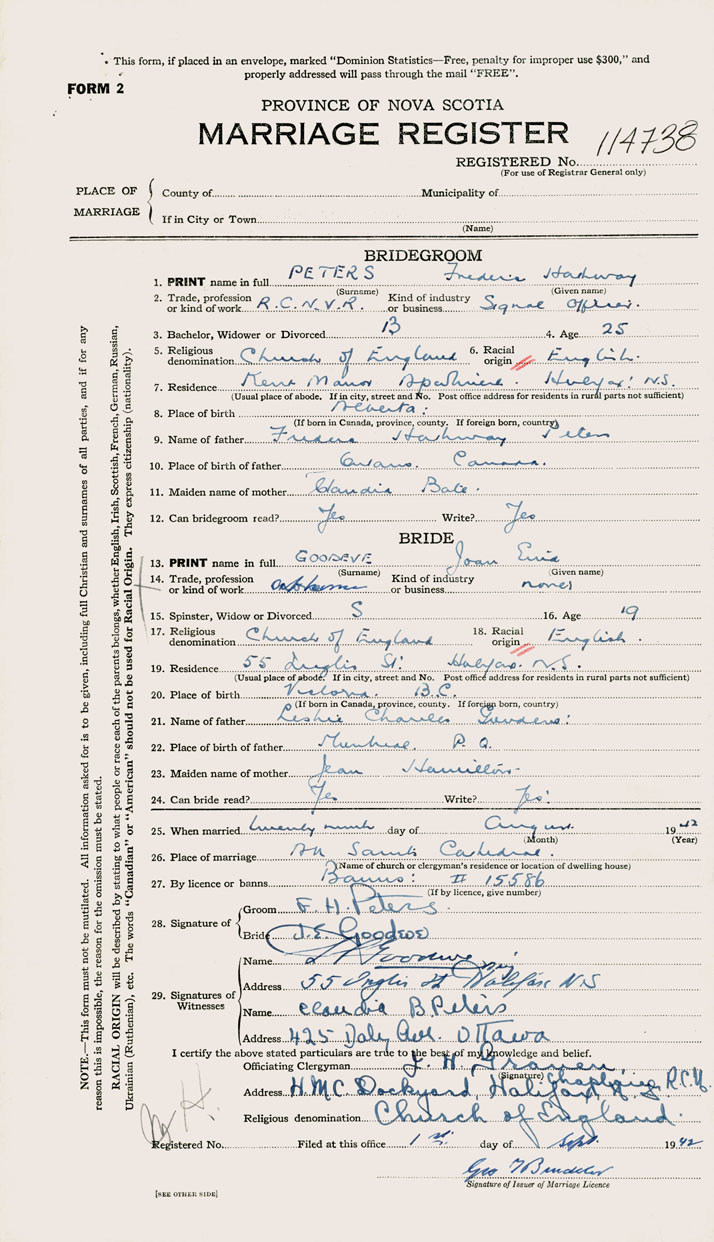 This form, if placed in an envelope, marked "Dominion Statistics—Free, penalty for improper use $300," and
properly addressed will pass through the mail "FREE".
FORM 2
PROVINCE OF NOVA SCOTIA
MARRIAGE REGISTER
114738
REGISTERED No.
(For use of Registrar General only)
PLACE OF MARRIAGE
County of Municipality of
If in City or Town
(Name)
BRIDEGROOM
1. PRINT name in full PETERS Frederic Hathway
(Surname) (Given name)
2. Trade, profession or kind of work R.C.N.V.R. Kind of industry or business Signal Officer.
3. Bachelor, Widower or Divorced B 4. Age 25
5. Religious denomination Church of England 6. Racial origin English.
7. Residence Kent Manor Halifax N.S.
(Usual place of abode. If in city, street and No. Post office address for residents in rural parts not sufficient)
8. Place of birth Alberta:
(If born in Canada, province, county. If foreign born, country)
9. Name of father Frederic Hathway Peters
10. Place of birth of father Canada.
11. Maiden name of mother Claudia Bate.
12. Can bridegroom read? Yes Write? Yes
BRIDE
13. PRINT name in full GOODEVE Joan Enid
(Surname) (Given name)
14. Trade, profession or kind of work Kind of industry or business none
15. Spinster, Widow or Divorced S 16. Age 19
17. Religious denomination Church of England 18. Racial origin English.
19. Residence 55 Inglis St. Halifax N.S.
(Usual place of abode. If in city, street and No. Post office address for residents in rural parts not sufficient)
20. Place of birth Victoria. B.C.
(If born in Canada, province, county. If foreign born, country)
21. Name of father Leslie Charles Goodeve.
22. Place of birth of father Montreal P.Q.
23. Maiden name of mother Jean Hamilton
24. Can bride read? Yes Write? Yes
25. When married twenty ninth day of August 1942
(Month) (Year)
26. Place of marriage All Saints Cathedral.
(Name of church or clergyman's residence or location of dwelling house)
27. By licence or banns Banns: # 15586
(If by licence, give number)
28. Signature of
Groom F. H. Peters.
Bride J.E. Goodeve
29. Signatures of Witnesses
Name Goodeve
Address 55 Inglis St Halifax NS
Name Claudia B. Peters
Address 425 Daly Ave. Ottawa
I certify the above stated particulars are true to the best of my knowledge and belief.
Officiating Clergyman
(Signature) Chaplain R.C.N.
Address H.M.C. Dockyard, Halifax, N.S.
Religious denomination Church of England.
Registered No. Filed at this office 1st day of Sept. 1942
Geo
Signature of Issuer of Marriage Licence
[SEE OTHER SIDE]
NOTE.—This form must not be mutilated. All information asked for is to be given, including full Christian and surnames of all parties, and if for any
reason this is impossible, the reason for the omission must be stated.
RACIAL ORIGIN will be described by stating to what people or race each of the parents belongs, whether English, Irish, Scottish, French, German, Russian,
Ukrainian (Ruthenian), etc. The words "Canadian" or "American" should not be used for Racial Origin. They express citizenship (nationality).